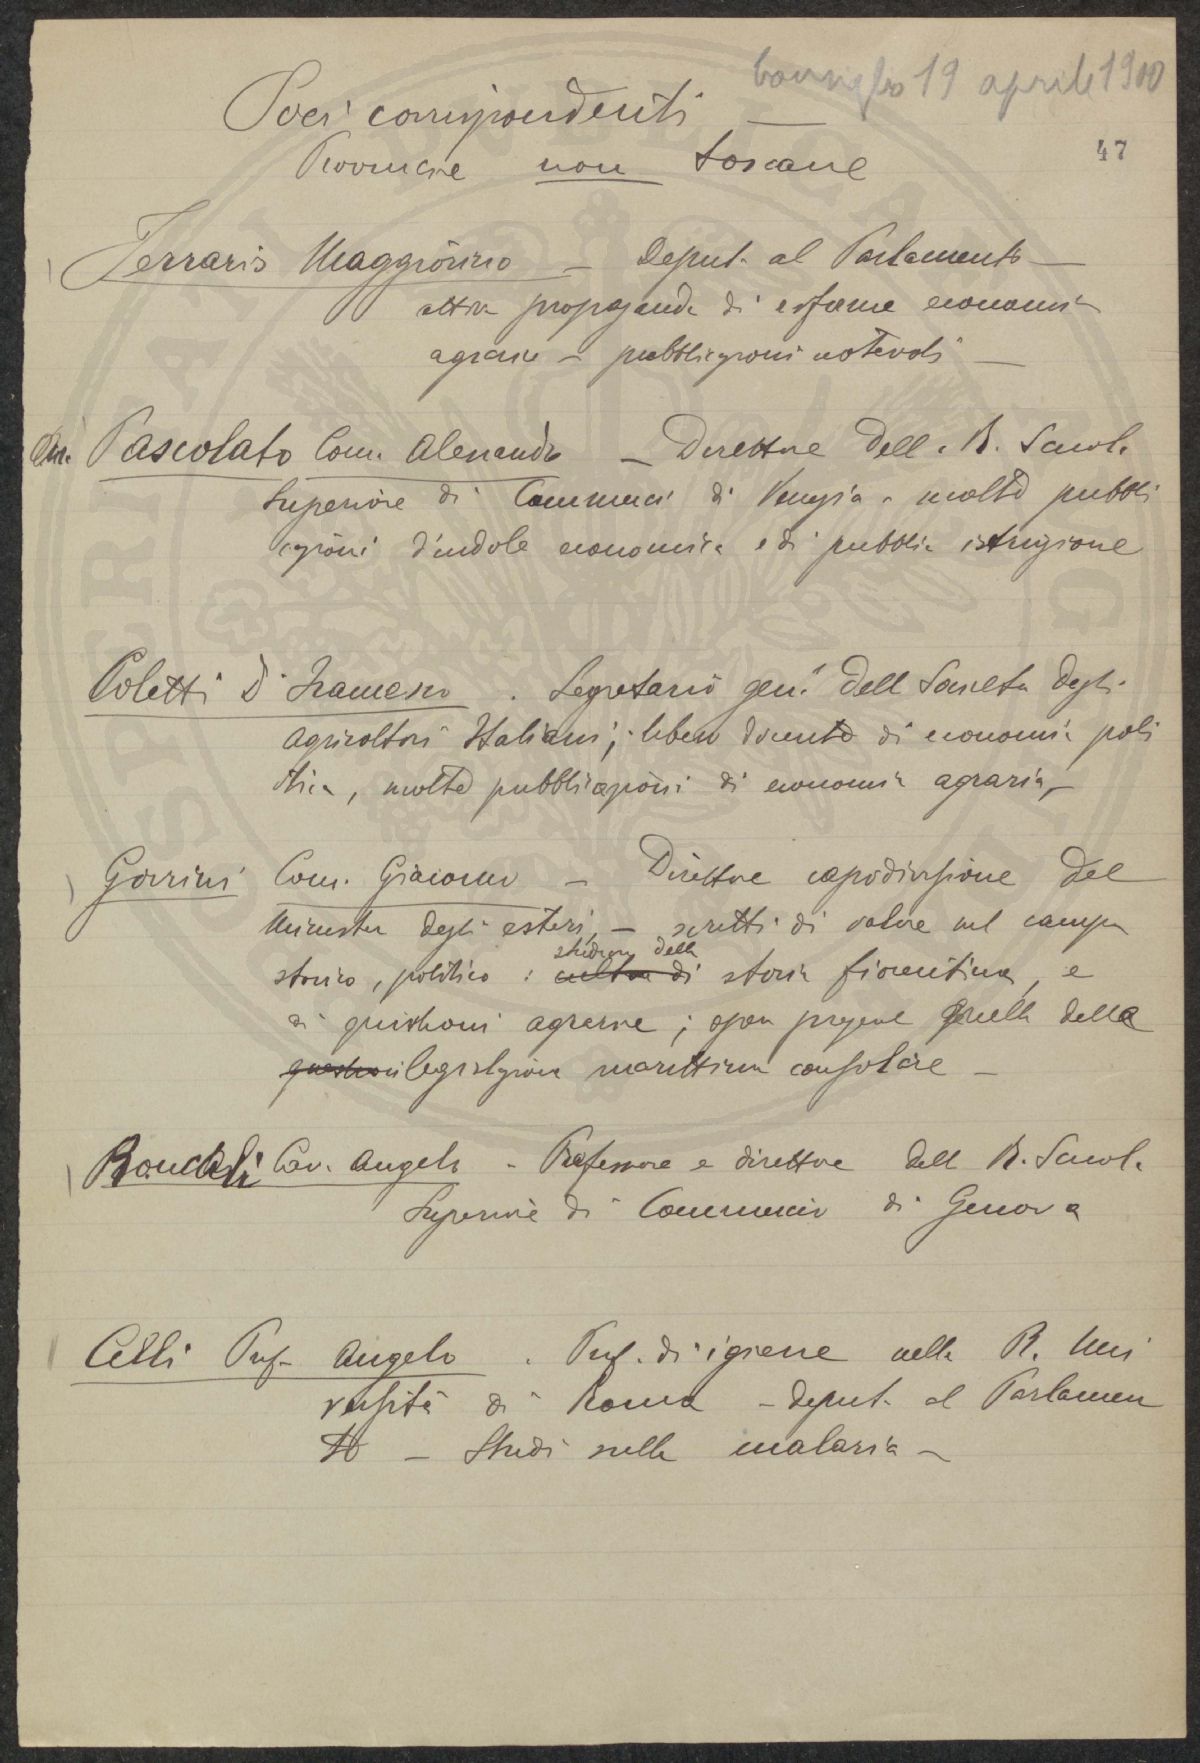 consiglio 19 aprile 1900
Soci corrispondenti —
47
Provincie non toscane
Ferraris Maggiorino — Deput. al Parlamento —
attiva propaganda di riforme economia
agrarie – pubblicazioni notevoli —
On. Pascolato Com. Alessandro — Direttore della R. Scuola
Superiore di Commercio di Venezia – molte pubbli
cazioni d'indole economica e di pubblica istruzione
Coletti Dr Francesco . Segretario gen. della Società degli
Agricoltori Italiani; libero docente di economia poli
tica, molte pubblicazioni di economia agraria –
Gorrini Com. Giacomo — Direttore capodivisione del
Ministero degli esteri, – scritti di valore nel campo
studioso della
storico, politico : cultore di storia fiorentina, e
di questioni agrarie; opera pregevole quella della
questioni legislazione marittima consolare —
Roncali Cav. Angelo – Professore e direttore della R. Scuola
Superiore di Commercio di Genova
Celli Prof. Angelo . Prof. di igiene nella R. Uni
versità di Roma – deput. al Parlamen
to – Studi sulla malaria —